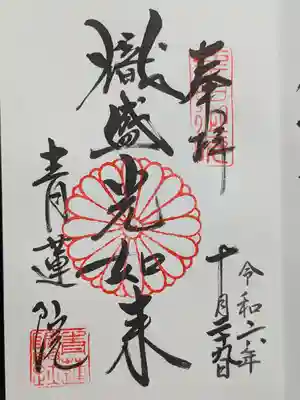 奉拝
令和六年
十月二十九日
熾盛光如来
青蓮院